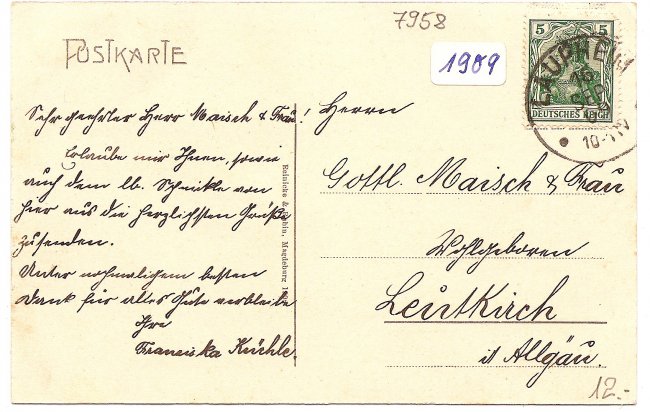 7958
POSTKARTE
1909
5
DEUTSCHES REICH
LAUPHEIM
16
SEP
10-11V
Sehr geehrter Herr Maisch & Frau!
Erlaube mir Ihnen, sowie
auch dem lb. von
hier aus die herzlichsten Grüße
zusenden.
Unter nochmaligem besten
Dank für alles Gute verbleibe
Ihre
Franciska Küchle.
Reinicke & Rubin, Magdeburg
Herrn
Gottl. Maisch & Frau
Wohlgeboren
Leutkirch
i/ Allgäu.
12.-